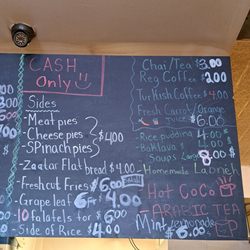 CASH
Only
Sides
-Meat pies
-Cheese pies $4.00
-SPinach pies
-Zaatar Flat bread $4.00
-Freshcut Fries $6.00
-Grape leaf 6 for 4.00
-10 falafels for $6.00
-Side of Rice $4.00
Chai/Tea $3.00
Reg Coffee 2.00
Turkish Coffee $4.00
Fresh Carrot/Orange
Juice $6.00
-Rice pudding 4.00
-Baklava 4.00
Soups 8.00
-Homemade
Hot Cocoa
-ARABIC TEA
Mint
$6.00